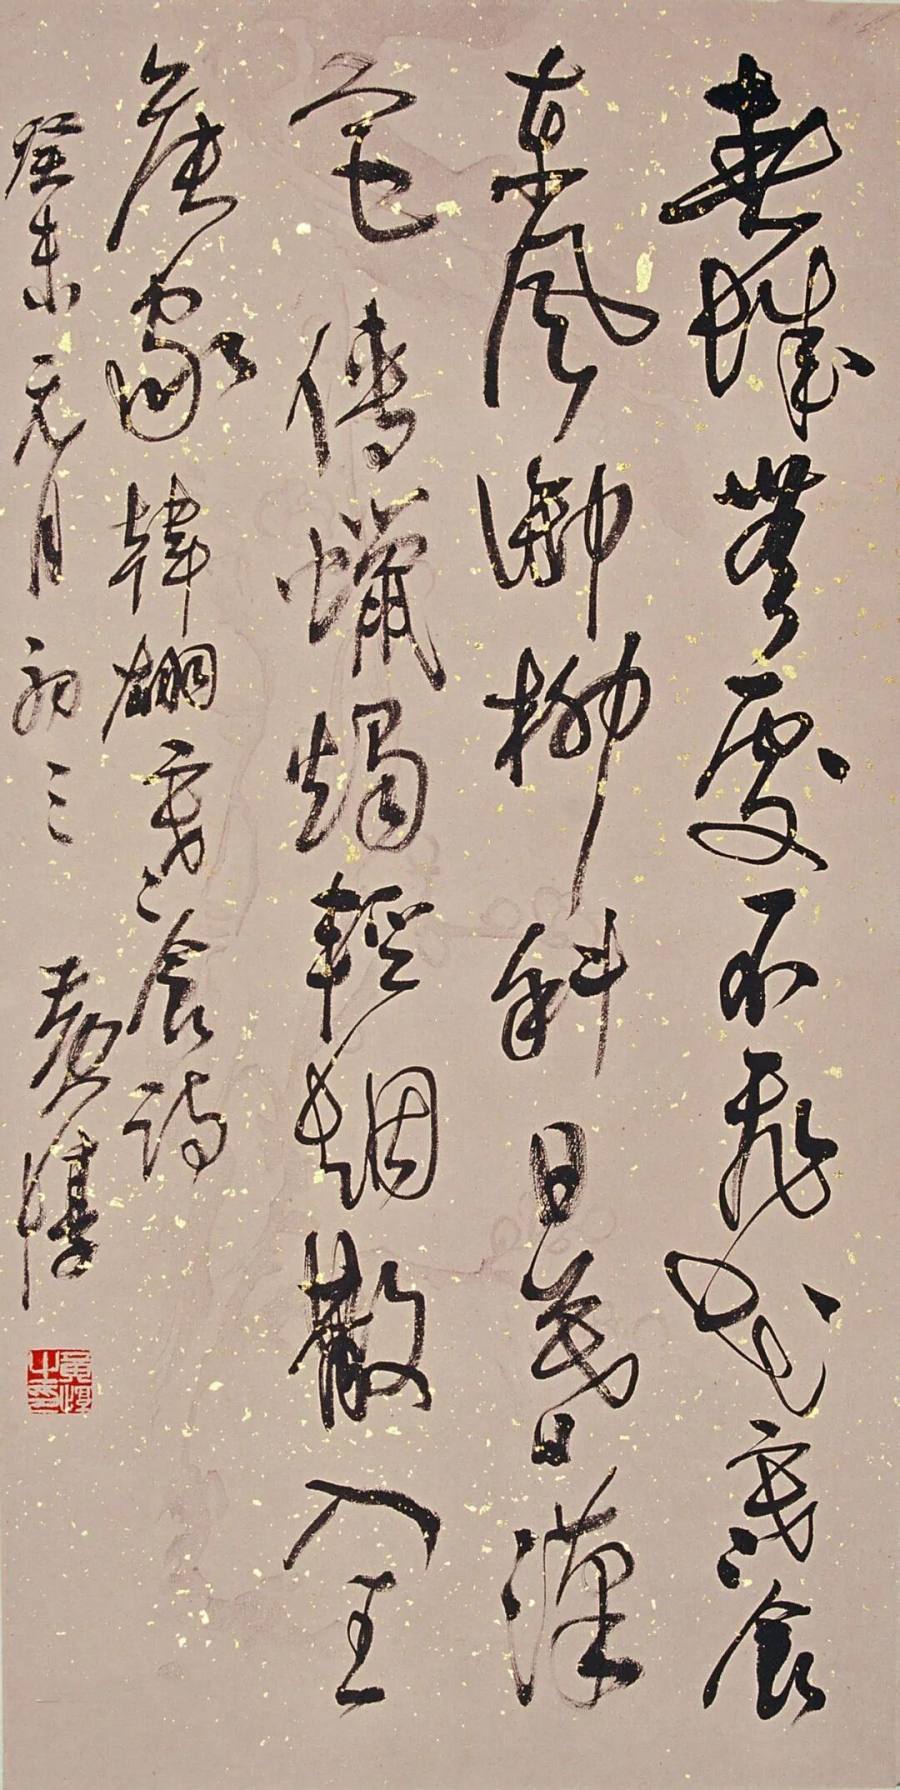 春城無處不飛花寒食
東風御柳斜日暮漢
宮傳蠟燭輕烟散入五
侯家韓翃寒食詩
癸未元月初三 黃惇
黃惇之